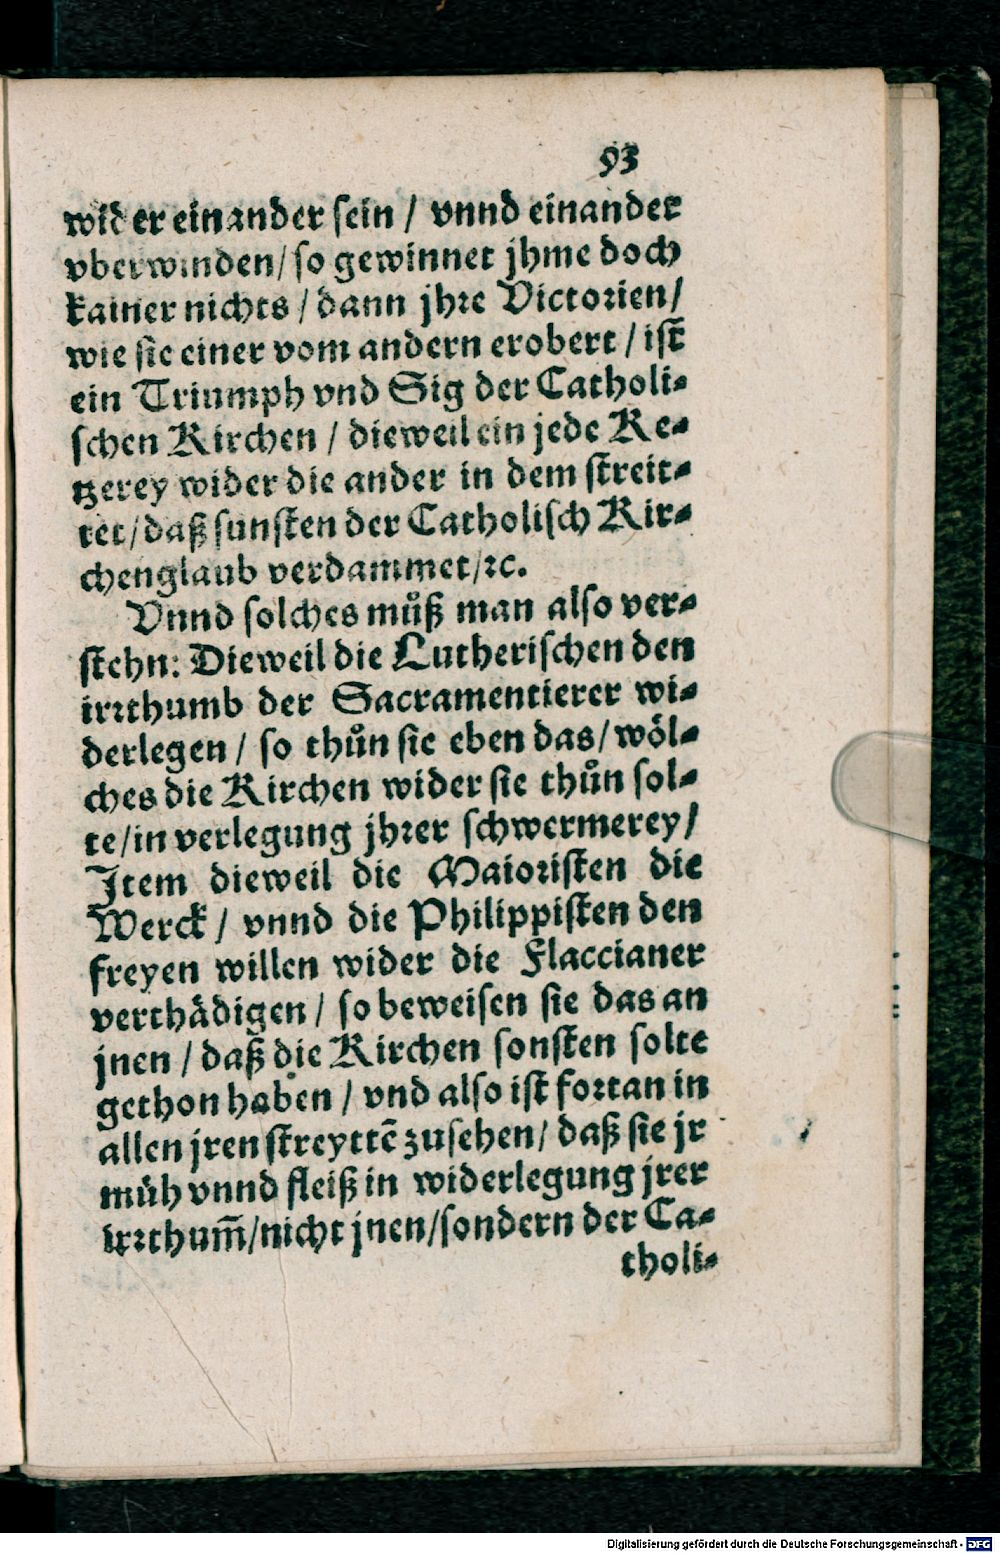 93
wider einander sein / vnnd einander
vberwinden / so gewinnet jhme doch
kainer nichts / dann jhre Victorien /
wie sie einer vom andern erobert / ist
ein Triumph vnd Sig der Catholi-
schen Kirchen / dieweil ein jede Ke-
tzerey wider die ander in dem streit-
tet / daß sunsten der Catholisch Kir-
chenglaub verdammet / ꝛc.
Vnnd solches můß man also ver-
stehn: Dieweil die Lutherischen den
irrthumb der Sacramentierer wi-
derlegen / so thůn sie eben das / wöl-
ches die Kirchen wider sie thůn sol-
te / in verlegung jhrer schwermerey /
Item dieweil die Maioristen die
Werck / vnnd die Philippisten den
freyen willen wider die Flaccianer
verthädigen / so beweisen sie das an
jnen / daß die Kirchen sonsten solte
gethon haben / vnd also ist fortan in
allen jren streyttē zusehen / daß sie jr
müh vnnd fleiß in widerlegung jrer
irrthum̃ / nicht jnen / sondern der Ca-
tholi-
Digitalisierung gefördert durch die Deutsche Forschungsgemeinschaft - DFG